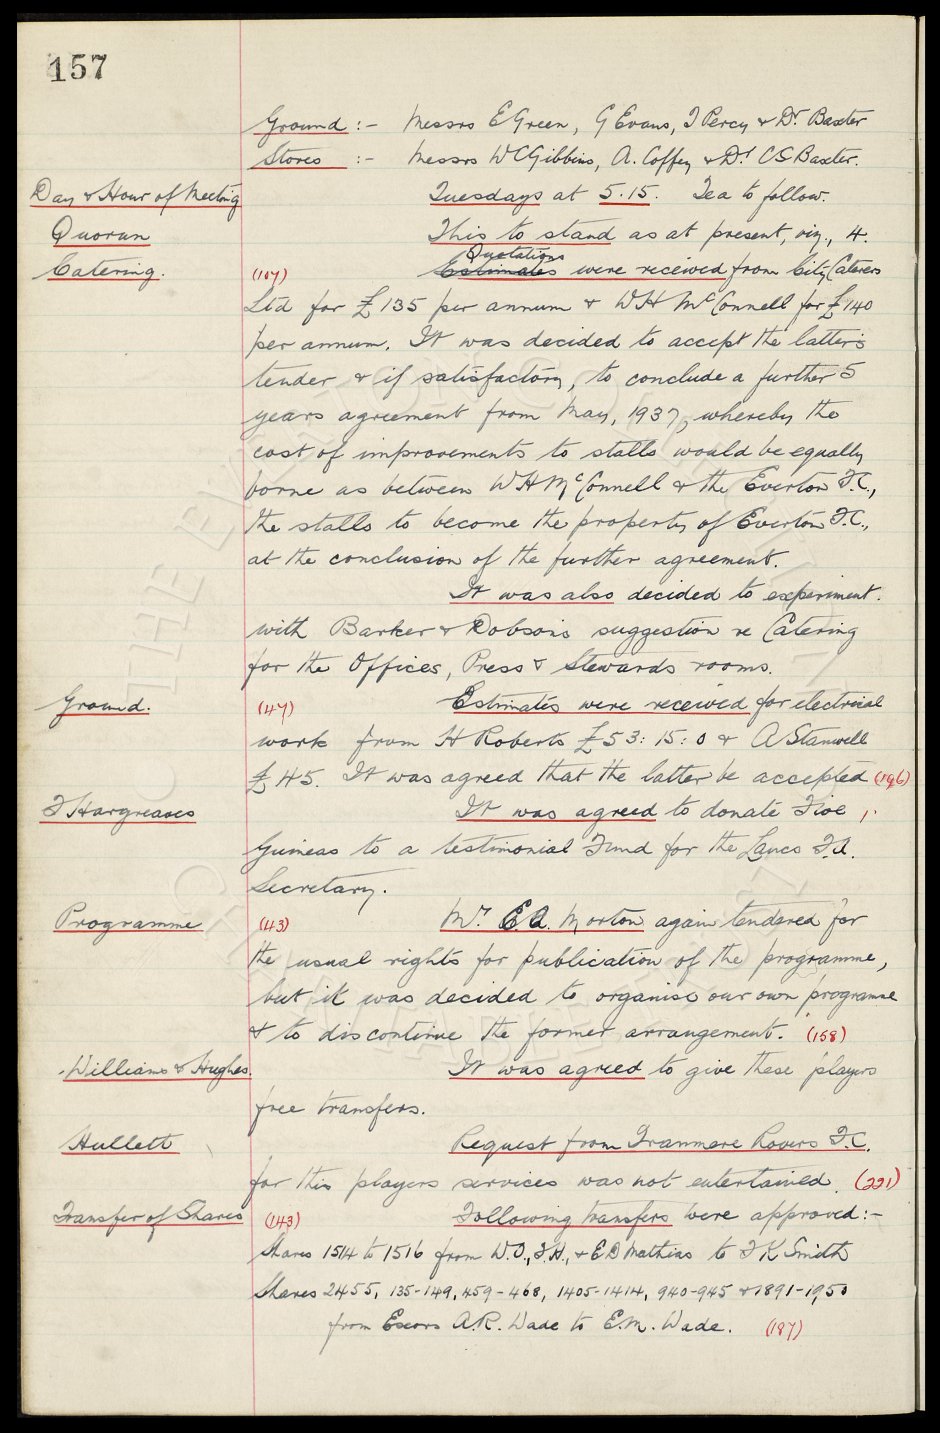 157
Ground :- Messrs E Green, G Evans, T Percy & Dr Baxter
Stores :- Messrs W C Gibbins, A. Coffey & Dr CS Baxter.
Day & Hour of Meeting Tuesdays at 5.15. Tea to follow.
Quorum This to stand as at present, viz., 4.
Quotations
Catering. (107) Estimates were received from City Caterers
Ltd for £135 per annum & W H McConnell for £140
per annum. It was decided to accept the latter's
tender & if satisfactory, to conclude a further 5
years agreement from May, 1937, whereby the
cost of improvements to stalls would be equally
borne as between W H McConnell & the Everton F.C.,
the stalls to become the property of Everton F.C.,
at the conclusion of the further agreement.
It was also decided to experiment
with Barker & Dobson's suggestion re Catering
for the Offices, Press & Stewards rooms.
Ground. (147) Estimates were received for electrical
work from H Roberts £53:15:0 & A Stanwell
£45. It was agreed that the latter be accepted (196)
F Hargreaves It was agreed to donate Five
Guineas to a testimonial Fund for the Lancs F.A.
Secretary.
Programme (43) Mr. E A. Morton again tendered for
the usual rights for publication of the programme,
but it was decided to organise our own programme
& to discontinue the former arrangement. (158)
Williams & Hughes. It was agreed to give these players
free transfers.
Hullett Request from Tranmere Rovers F.C.
for this players services was not entertained. (221)
Transfer of Shares (143) Following transfers were approved:-
Shares 1514 to 1516 from W.O., F.H., & E D Mathias to F K Smith
Shares 2455, 135-149, 459-468, 1405-1414, 940-945 & 1891-1950
from Exors A.R. Wade to E.M. Wade. (187)